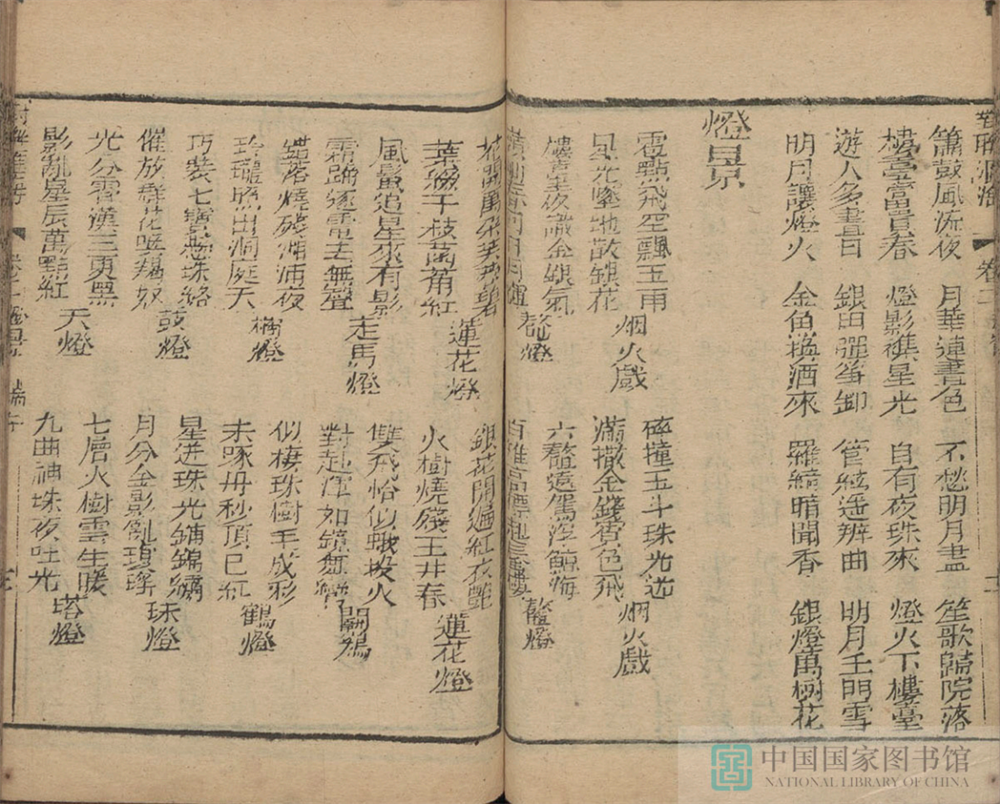 對聯滙海
卷二
簫鼓風流夜 月華連晝色 不愁明月盡 笙歌歸院落
樓臺富貴春 燈影襍星光 自有夜珠來 燈火下樓臺
遊人多晝日 銀田彈箏卸 管絃遥辨曲 明月千門雪
明月讓燈火 金魚換酒來 羅綺暗聞香 銀燈萬樹花
燈景
雹點飛空飄玉雨 碎撞玉斗珠光迸
星光墜地散銀花 烟火戲 滿撒金錢霞色飛 烟火戲
樓臺半夜識金銀氣 六鰲遠駕浮鯨海
鰲燈 鰲燈
花開萬朶芙蓉碧 銀花開遍紅衣艷
葉簇千枝菡萏紅 蓮花燈 火樹燒殘玉井春 蓮花燈
風鬣追星來有影 雙飛恰似蛾投火
霜蹄逐電去無聲 走馬燈 對起渾如鏡無
蠟落燒殘浦夜 似棲珠樹千成彩
玲瓏照出洞庭天 橘燈 未啄丹砂頂已紅 鶴燈
巧裝七寶懸珠絡 星迸珠光鋪錦繡
催放群花唤羯奴 鼓燈 月分金影亂 珠燈
光分霄漢三更黑 七層火樹雲生暖
影亂星辰萬點紅 天燈 九曲神珠夜吐光 塔燈
燈景 端午
中国国家图书馆
NATIONAL LIBRARY OF CHINA